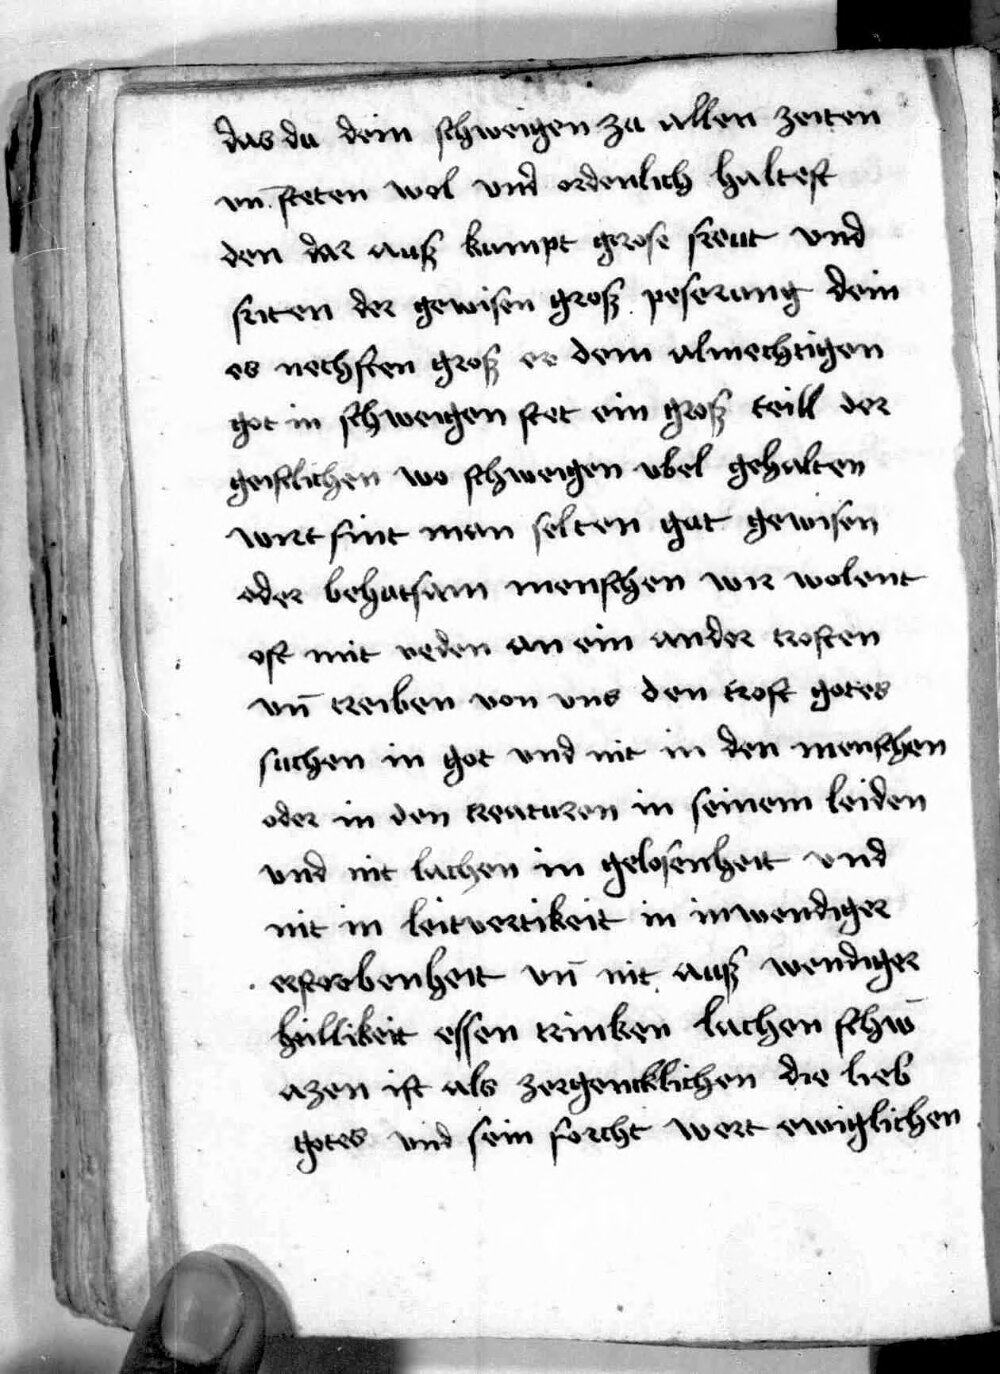 das du dein schweigen zu allen zeiten
vn̄ steten wol vnd ordenlich haltest
den dar auß kumpt grose freut vnd
friten der gewisen groß peserung dein
es nechsten groß ere dem almechtigen
got in schweigen stet ein groß teill der
geistlichen wo schweigen vbel gehalten
wirt fint man selten gut gewisen
oder behutsam menschen wir wolent
oft mit reden an ein ander trosten
vn̄ treiben von vns den trost gotes
suchen in got vnd nit in den menschen
oder in den creaturen in seinem leiden
vnd nit lachen in gelosenheit vnd
nit in leitvertikeit in inwendiger
erstorbenheit vn̄ nit auß wendiger
heillikeit essen trinken lachen schw̄
azen ist als zergencklichen die lieb
gotes vnd sein forcht wert ewiglichen